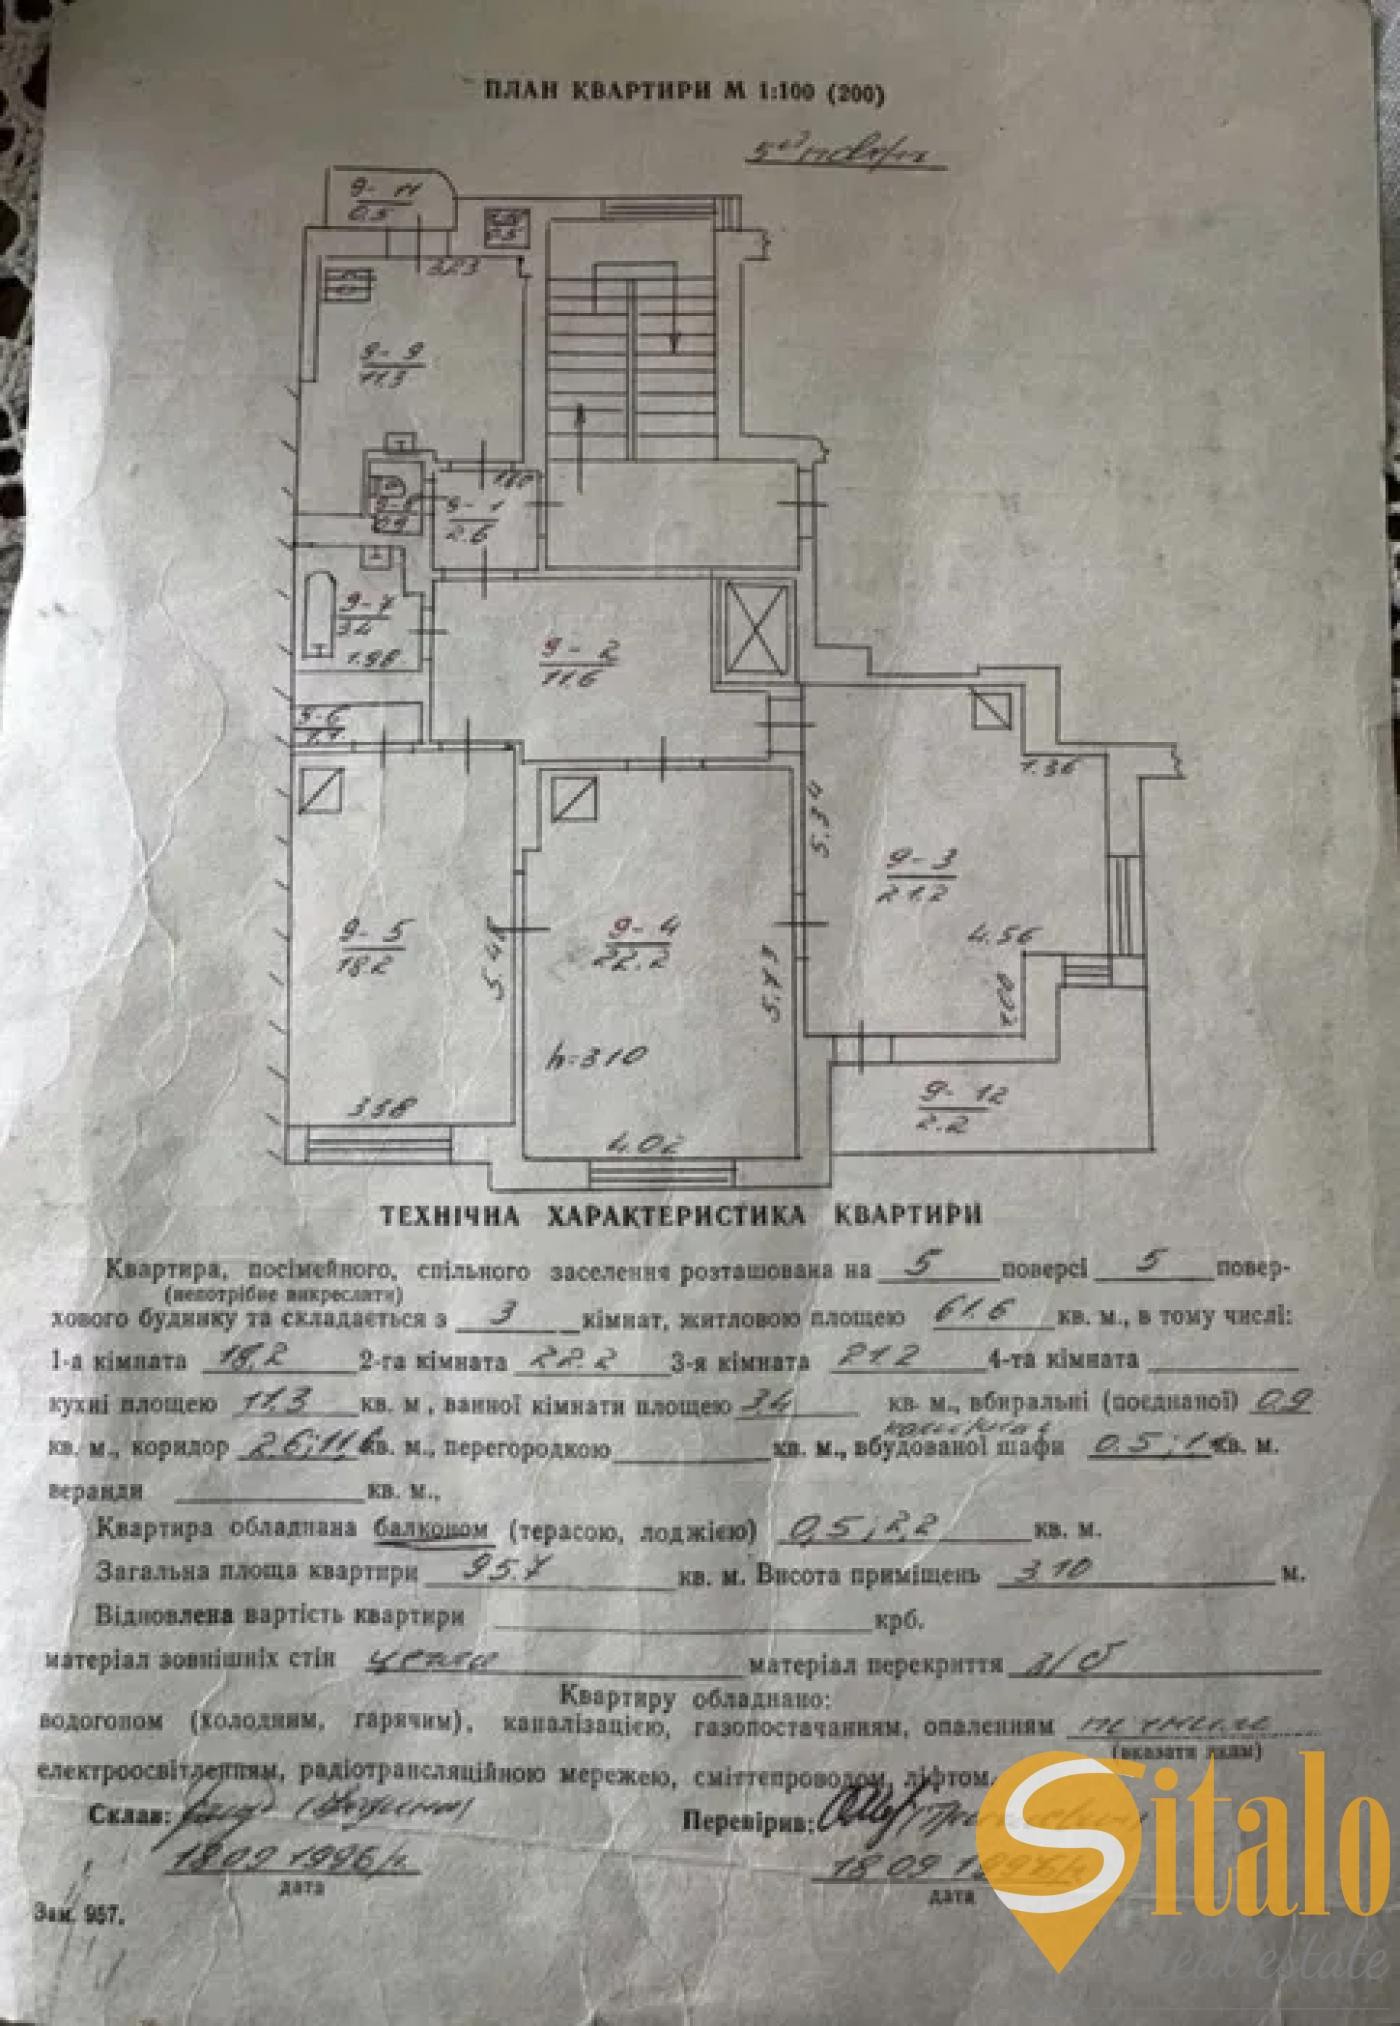 ПЛАН КВАРТИРИ М 1:100 (200)
9-11
0.5
3.23
9-9
11.3
1.60
9-1
2.6
9-7
3.4
1.98
9-2
11.6
9-6
1.36
5.34
9-3
21.2
4.56
9-5
18.2
5.48
9-4
22.2
5.73
h=3.10
3.58
4.02
9-12
2.2
ТЕХНІЧНА ХАРАКТЕРИСТИКА КВАРТИРИ
Квартира, посімейного, спільного заселення розташована на 5 поверсі 5 повер-
(непотрібне викреслити)
хового будинку та складається з 3 кімнат, житловою площею 61.6 кв. м., в тому числі:
1-а кімната 18,2 2-га кімната 22.2 3-я кімната 21.2 4-та кімната
кухні площею 11.3 кв. м, ванної кімнати площею 3.4 кв. м., вбиральні (поєднаної) 0.9
кв. м., коридор 2.6; 11,6 кв. м., перегородкою кв. м., вбудованої шафи 0.5; кв. м.
веранди кв. м.,
Квартира обладнана балконом (терасою, лоджією) 0,5; 2,2 кв. м.
Загальна площа квартири 95.7 кв. м. Висота приміщень 3.10 м.
Відновлена вартість квартири крб.
матеріал зовнішніх стін цегла матеріал перекриття з/б
Квартиру обладнано:
водогоном (холодним, гарячим), каналізацією, газопостачанням, опаленням
(вказати яким)
електроосвітленням, радіотрансляційною мережею, сміттепроводом, ліфтом.
Склав: Перевірив:
18 09 1996 18 09 1996
дата дата
Зам. 957.
Sitalo
real estate